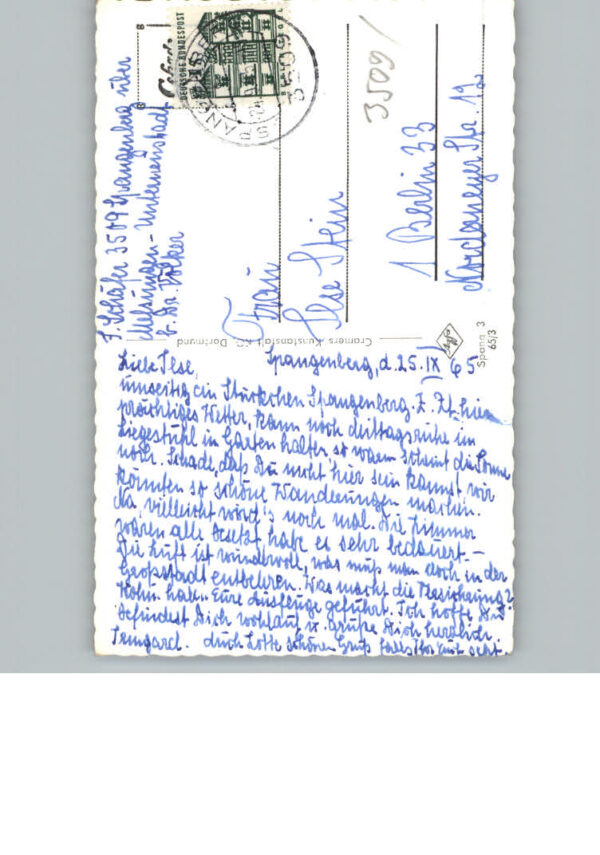 Spangenberg, d. 25. IX 65
Liebe Ilse,
umseitig ein Stückchen Spangenberg. Z. Zt. hier
prächtiges Wetter, kann noch Mittagsruhe im
Liegestuhl im Garten halten, so warm scheint die Sonne
noch. Schade, daß Du nicht hier sein kannst, wir
könnten so schöne Wanderungen machen.
Na, vielleicht wird's noch mal. Die Zimmer
waren alle besetzt, habe es sehr bedauert. –
Die Luft ist wundervoll, was muß man doch in der
Großstadt entbehren. Was macht die Versicherung?
Wohin haben Eure Ausflüge geführt. Ich hoffe Du
befindest Dich wohlauf u. grüße Dich herzlich
Irmgard. Auch Lotte schönen Gruß falls Ihr Euch seht.
I. Schäfer 3509 Spangenberg über
Melsungen - Unterweinstadt
b. Dr. Völker
DEUTSCHE BUNDESPOST
SPANGENBERG
3509
3509
Frau
Ilse Stein
1 Berlin 33
Norderneyer Str. 12
Cramers Kunstanstalt KG, Dortmund
Spang 3
65/3